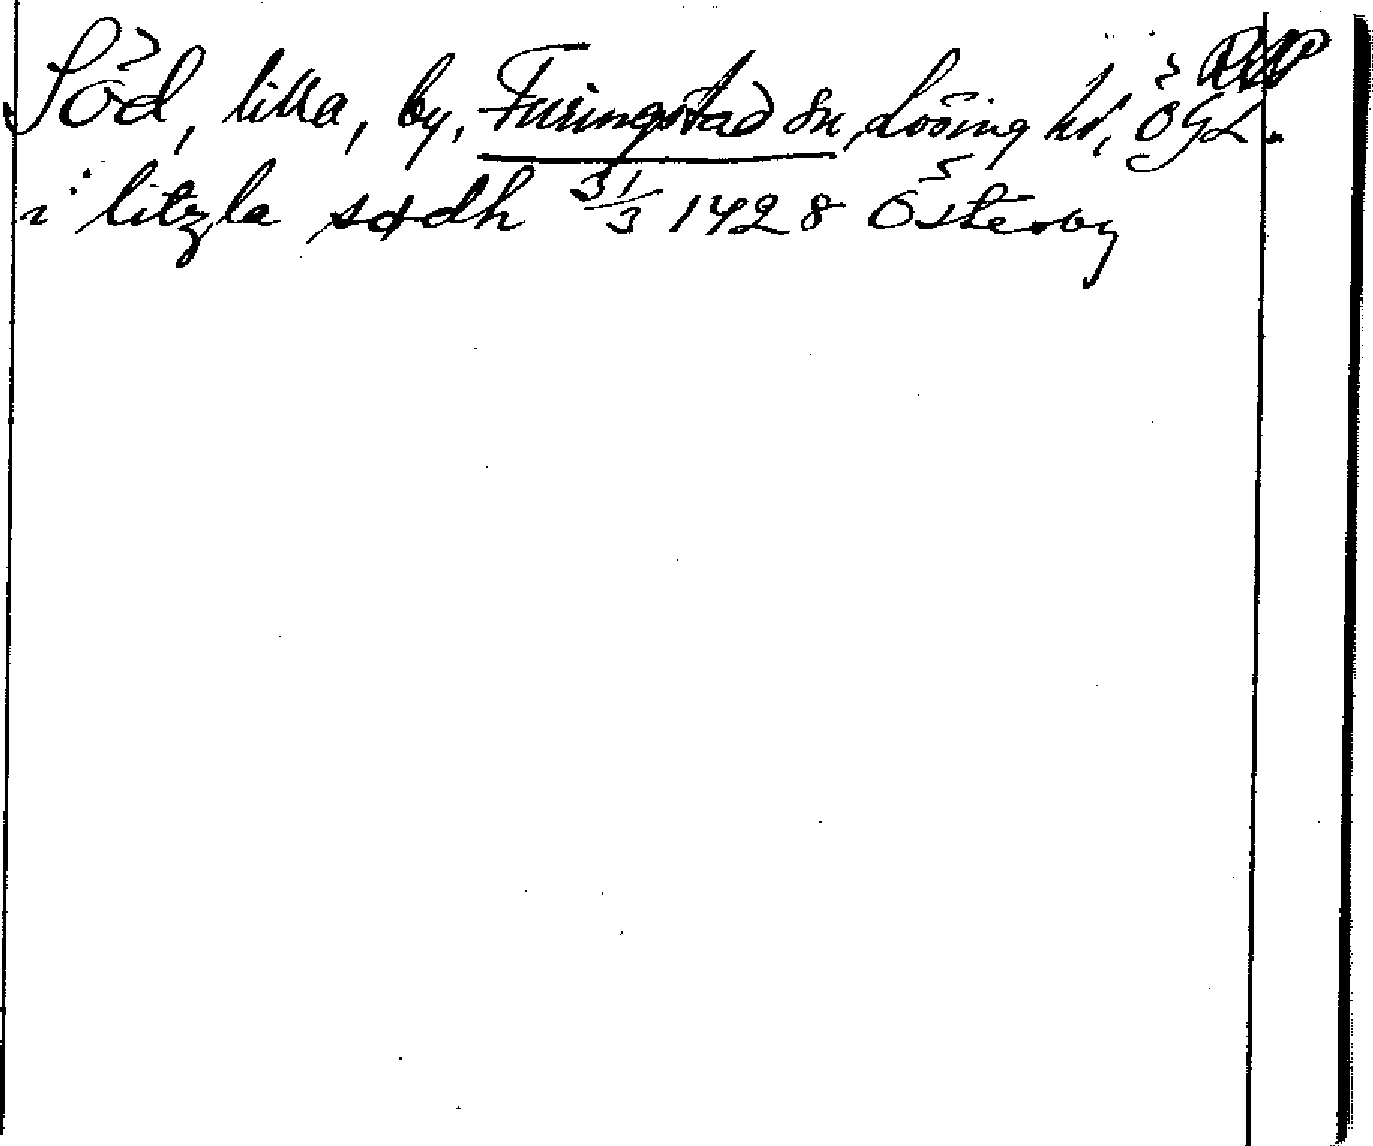 Söd, lilla, by, Furingstad sn, Lösing hd, ÖGL.
i litzla sødh 31/3 1428 Österby